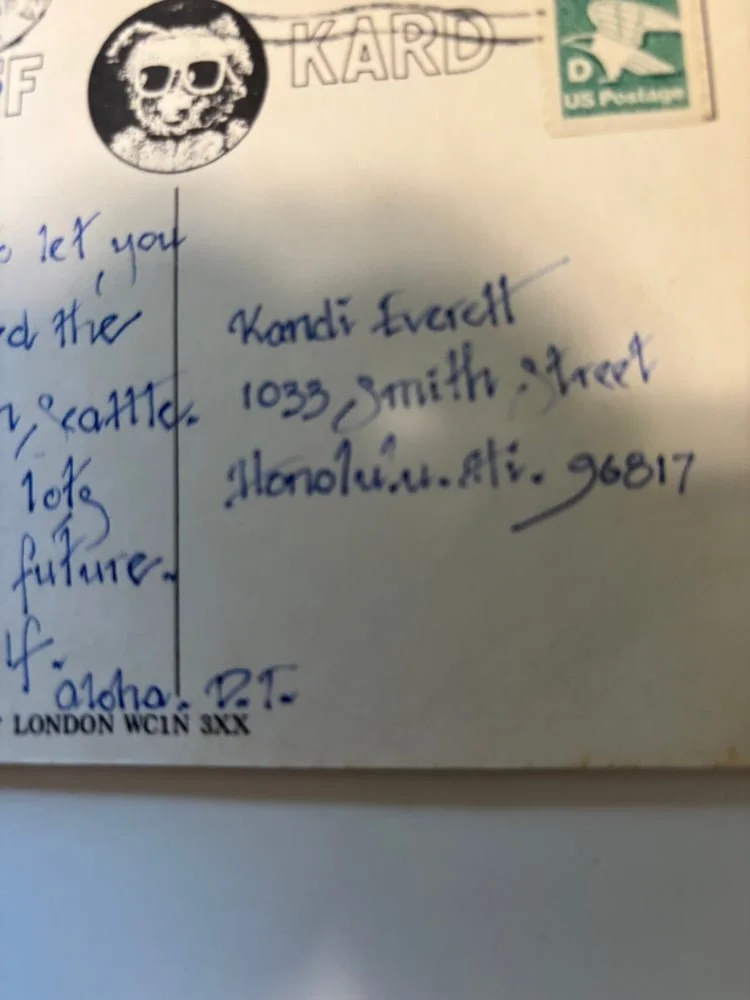 F
KARD
D
US Postage
let you
d the
Seattle.
lots
future.
aloha. D.T.
LONDON WC1N 3XX
Kandi Everett
1033 Smith Street
Honolulu. Hi. 96817